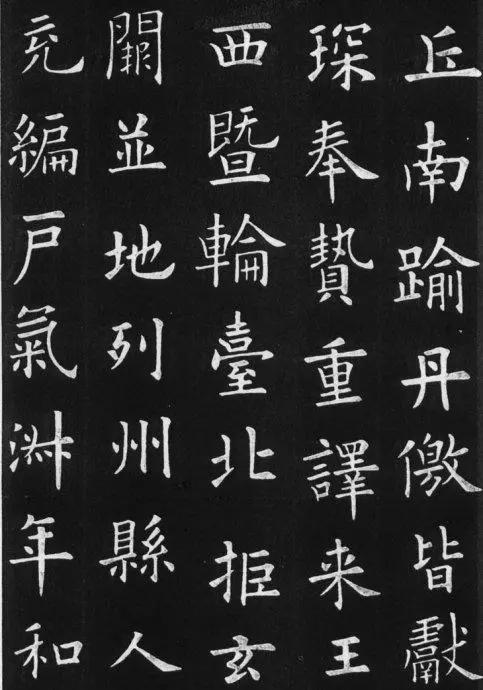 丘南踰丹儌皆獻
琛奉贄重譯来王
西暨輪臺北拒玄
闕並地列州縣人
充編戸氣淋年和